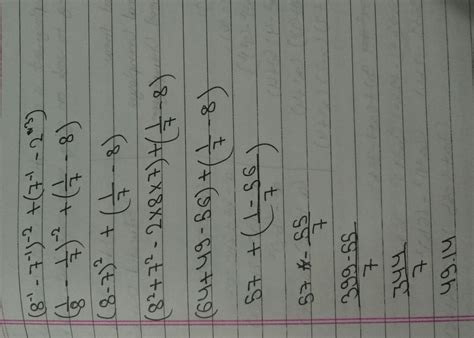 (8⁻¹ - 7⁻¹)⁻² + (7⁻¹ - 2ˣ³)
(1/8 - 1/7)⁻² + (1/7 - 8)
(8-7)² + (1/7 - 8)
(8² + 7² - 2×8×7) + (1/7 - 8)
(64+49-56) + (1/7 - 8)
57 + (1-56/7)
57 - 55/7
399-55/7
344/7
49.14